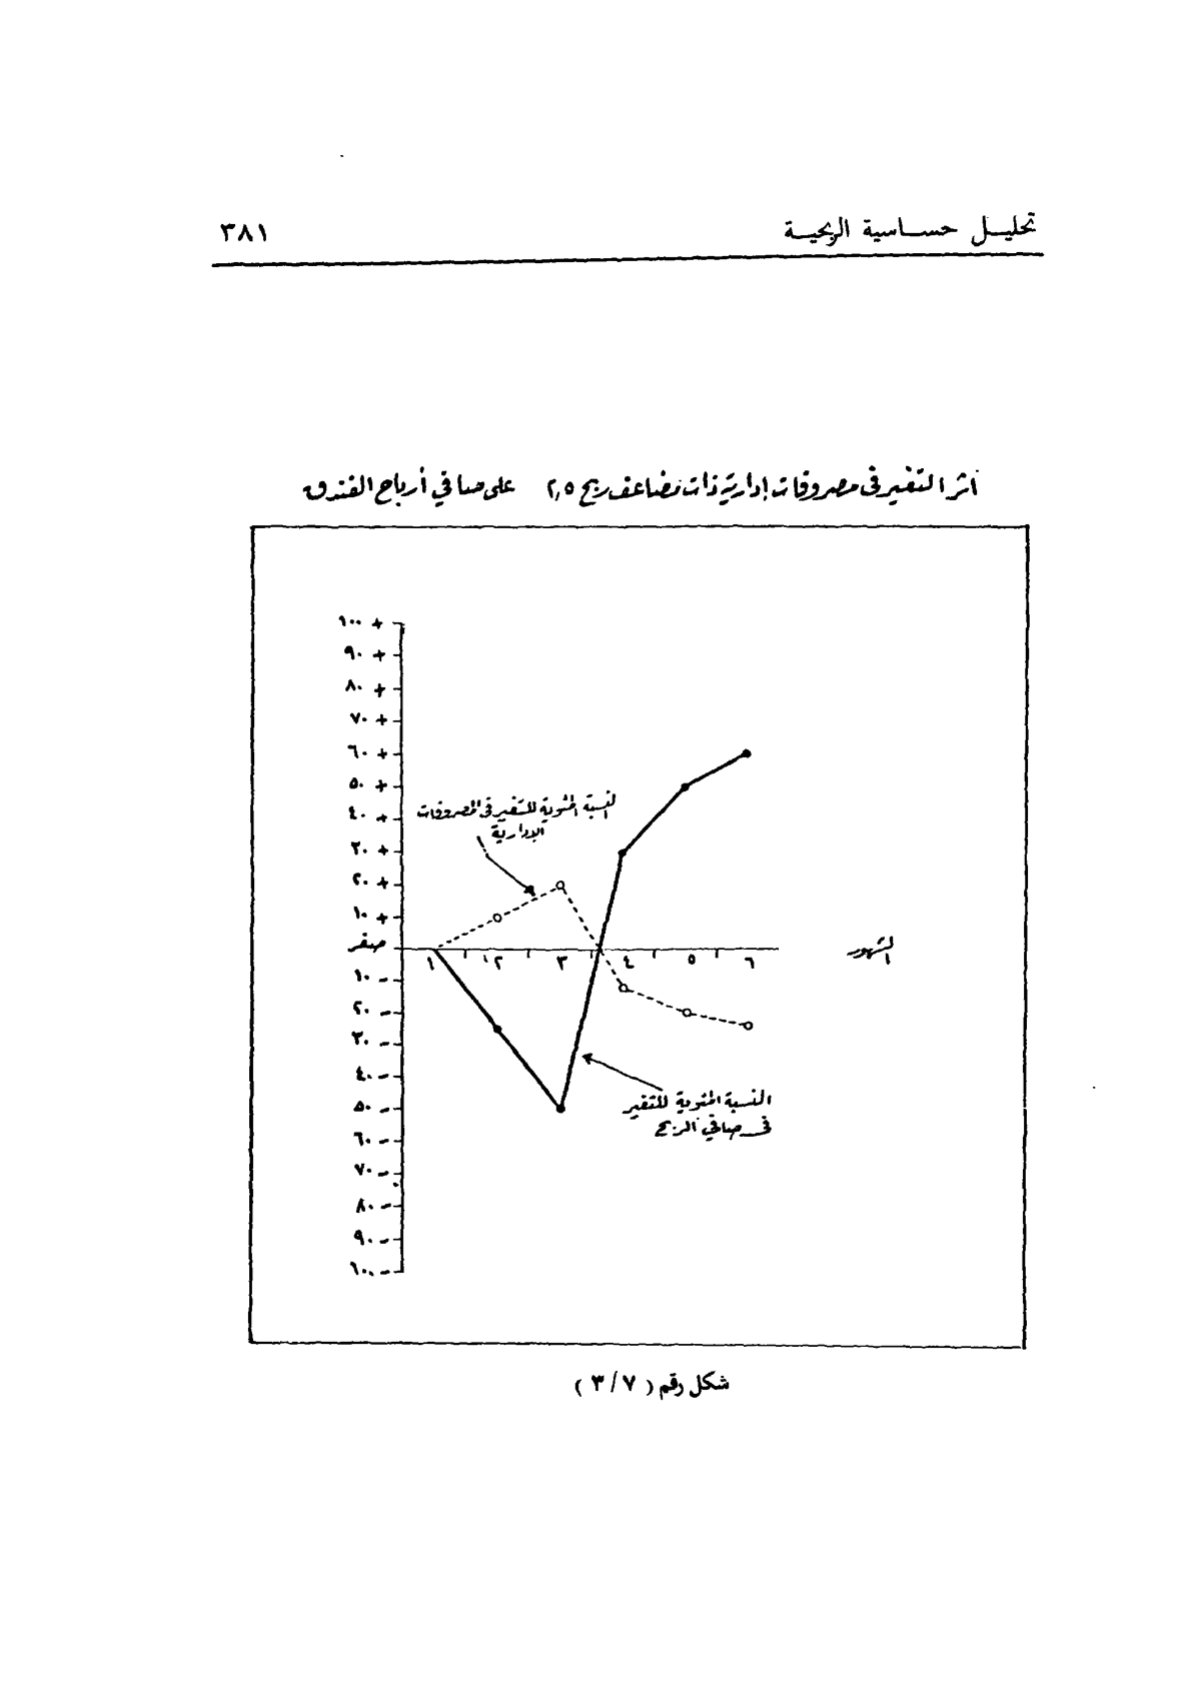 تحليل حساسية الربحية
٣٨١
أثر التغير فى مصروفات إدارية ذات مضاعف ربح ٢,٥ على صافي أرباح الفندق
١٠٠ +
٩٠ +
٨٠ +
٧٠ +
٦٠ +
٥٠ +
٤٠ +
٣٠ +
٢٠ +
١٠ +
صفر
١٠ -
٢٠ -
٣٠ -
٤٠ -
٥٠ -
٦٠ -
٧٠ -
٨٠ -
٩٠ -
١٠٠ -
النسبة المئوية للتغير فى المصروفات
الإدارية
١ ٢ ٣ ٤ ٥ ٦
الشهور
النسبة المئوية للتغير
فى صافي الربح
شكل رقم ( ٣/٧ )